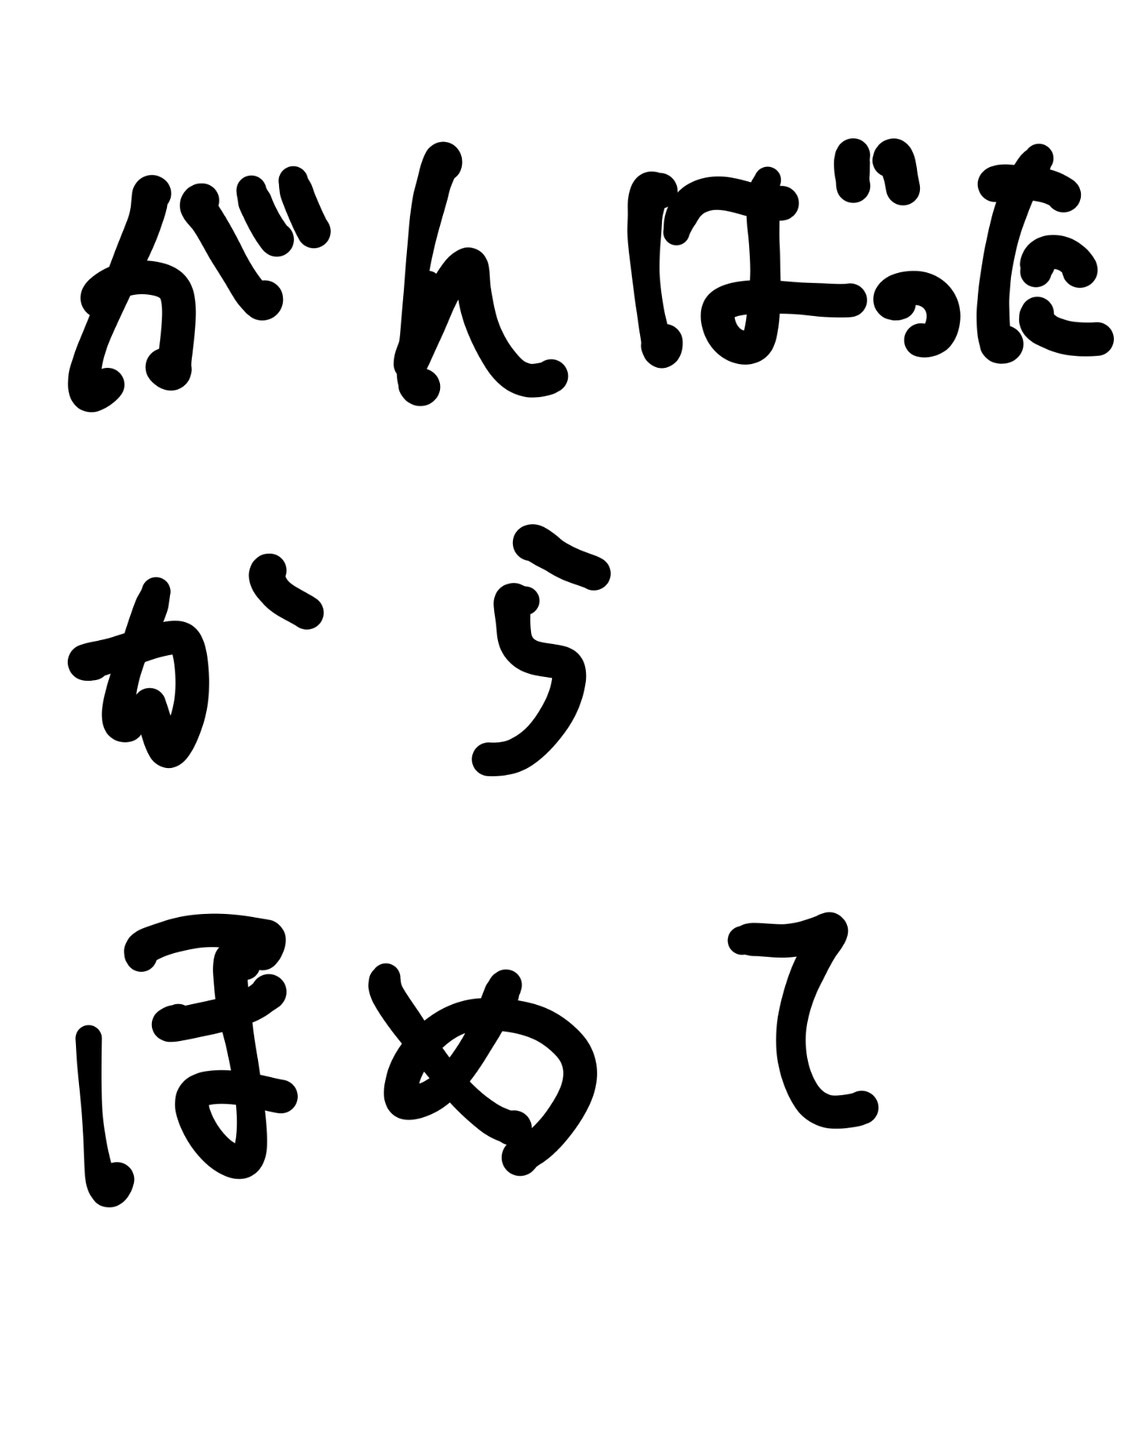 がんばった
から
ほめて